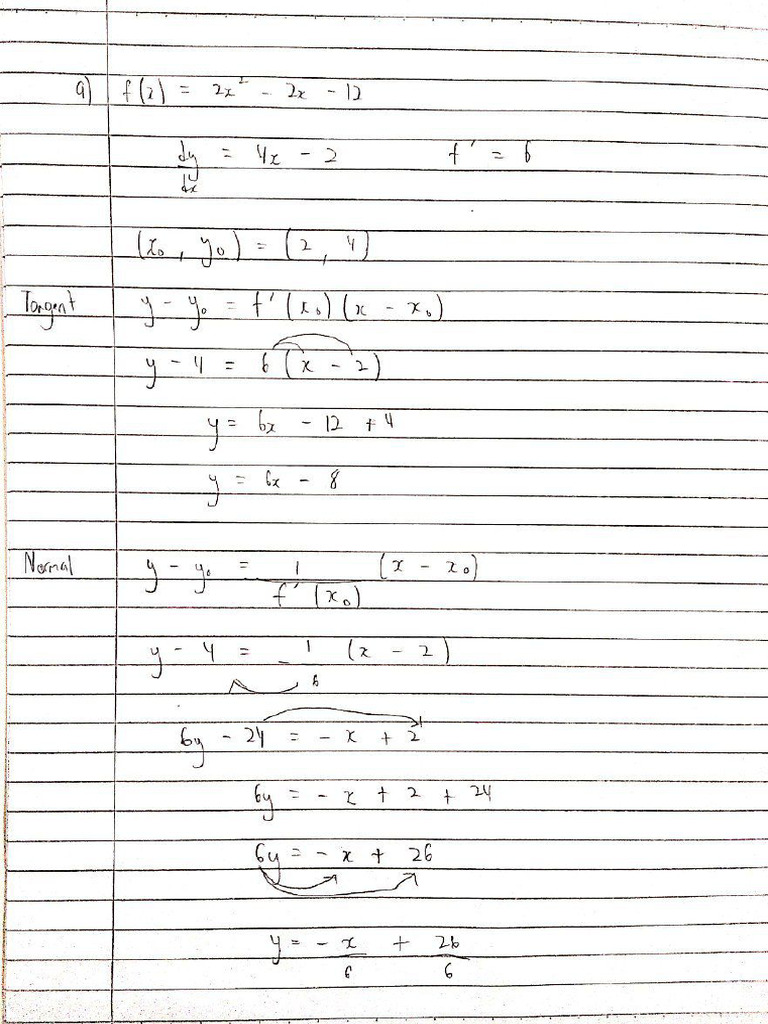 a) f(x) = 2x² - 2x - 12
dy/dx = 4x - 2 f' = 6
(x₀, y₀) = (2, 4)
Tangent y - y₀ = f'(x₀)(x - x₀)
y - 4 = 6(x - 2)
y = 6x - 12 + 4
y = 6x - 8
Normal y - y₀ = 1/f'(x₀) (x - x₀)
y - 4 = -1/6 (x - 2)
6y - 24 = -x + 2
6y = -x + 2 + 24
6y = -x + 26
y = -x/6 + 26/6